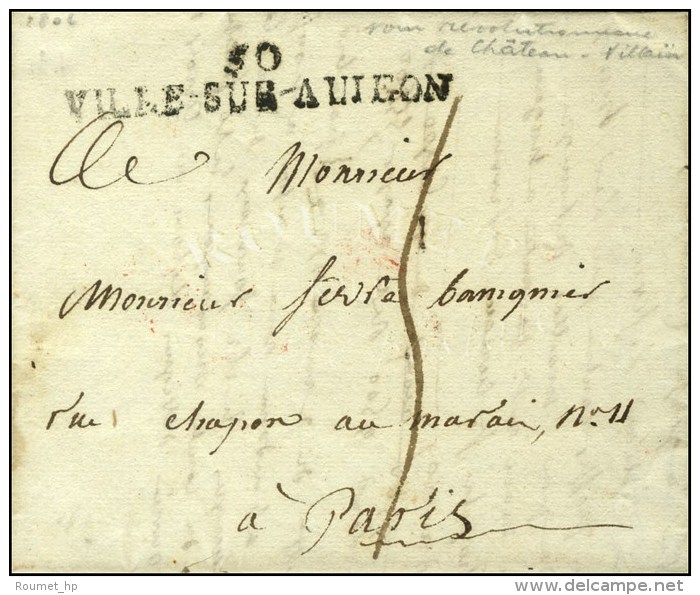 1806
nom révolutionnaire
de Château-Villain
50
VILLE-SUR-AUJEON
A Monsieur
Monsieur ferré banquier
rue chapon au marais, No. 11
à Paris
Roumet_hp
delcampe.net